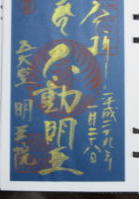 奉拝
平成二九年
一月二八日
不動明王
五大堂
明王院